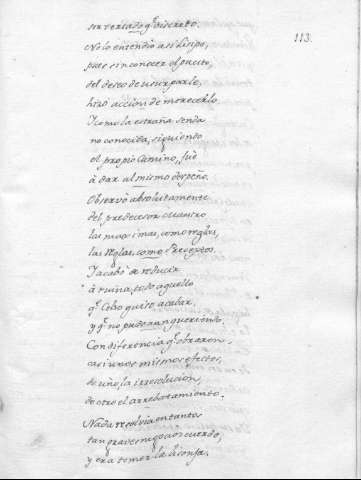 113.
ser versado q.e discreto.
No lo entendio assi Lisipo,
pues sin conocer el puesto,
del deseo de usurparle,
hizo accion de merecerlo.
I como la estraña senda
no conocida, siguiendo
el propio Camino, fuè
à dar al mismo despeño.
Observò absolutamente
del predecesor
las maximas, como reglas,
las Reglas, como Preceptos.
I acabò de reducir
à ruina, todo aquello
q.e Celso quiso acabar,
y q.e no pudo aun queriendo.
Con diferencia q.e obraron,
casi unos mismos efectos,
de uno, la irresolucion,
de otro el arrebatamiento.
Nada resolvia en tantos
tan graves negocios cuerdo,
y era temor la lisonja,